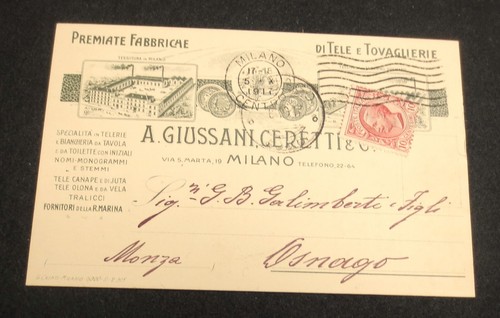 PREMIATE FABBRICHE
DI TELE E TOVAGLIERIE
MILANO
1917
CENTRO
A. GIUSSANI, CEDETTI & C.
VIA S. MARTA, 19 MILANO TELEFONO, 22-64
SPECIALITÀ IN TELERIE
E BIANCHERIA DA TAVOLA
E DA TOILETTE CON INIZIALI
NOMI-MONOGRAMMI
E STEMMI
TELE CANAPE E DI JUTA
TELE OLONA E DA VELA
TRALICCI
FORNITORI DELLA R. MARINA
Sig.ri G. B. Galimberti e Figli
Monza Osnago